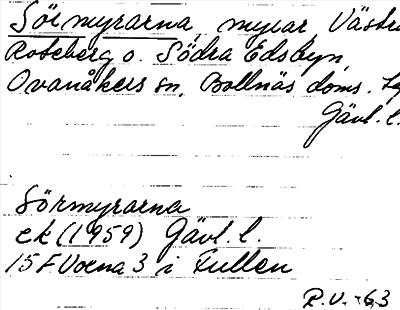 Sörmyrarna, myrar, Västra
Roteberg o. Södra Edsbyn,
Ovanåkers sn, Bollnäs doms. tg
Gävl. l.
Sörmyrarna
ek (1959) Gävl. l.
15 F Voxna 3 i Fullen
R.V. -63